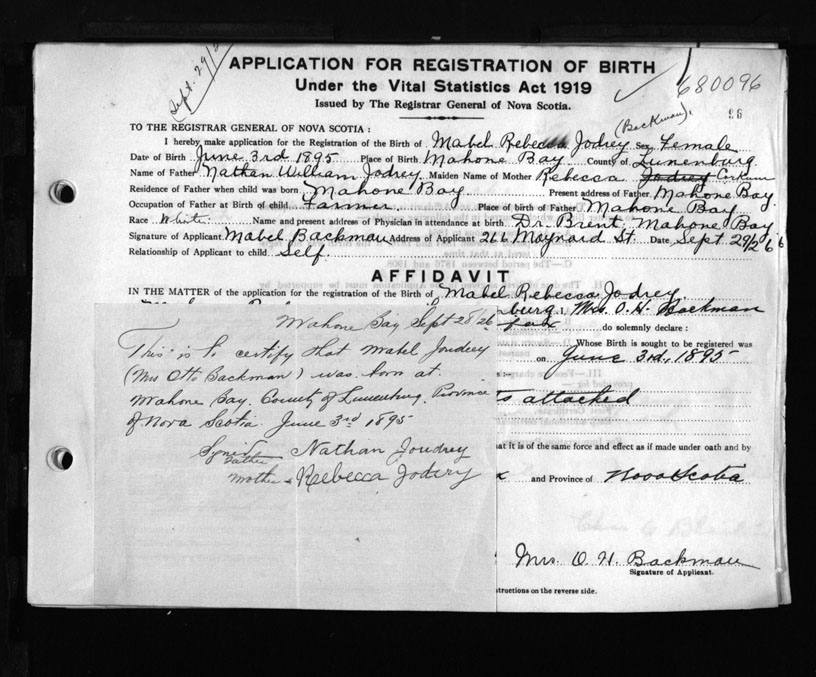 Sept. 29/26
APPLICATION FOR REGISTRATION OF BIRTH
Under the Vital Statistics Act 1919
Issued by The Registrar General of Nova Scotia.
680096
96
(Backman).
TO THE REGISTRAR GENERAL OF NOVA SCOTIA :
I hereby make application for the Registration of the Birth of Mabel Rebecca Jodrey Sex Female
Date of Birth June 3rd 1895 Place of Birth Mahone Bay County of Lunenburg
Name of Father Nathan William Jodrey Maiden Name of Mother Rebecca Jodrey Corkum
Residence of Father when child was born Mahone Bay Present address of Father Mahone Bay.
Occupation of Father at Birth of child Farmer. Place of birth of Father Mahone Bay
Race White Name and present address of Physician in attendance at birth Dr. Brent. Mahone Bay
Signature of Applicant Mabel Backman Address of Applicant 266 Maynard St. Date Sept 29/26
Relationship of Applicant to child Self.
AFFIDAVIT
IN THE MATTER of the application for the registration of the Birth of Mabel Rebecca Jodrey.
burg I, Mrs. O. H. Backman
fax do solemnly declare :
Whose Birth is sought to be registered was
on June 3rd, 1895
ts attached
at it is of the same force and effect as if made under oath and by
x and Province of Nova Scotia
Mrs. O. H. Backman
Signature of Applicant.
tructions on the reverse side.
Mahone Bay Sept 28/26
This is to certify that Mabel Joudrey
(Mrs Otto Backman) was born at
Mahone Bay. County of Lunenburg. Province
of Nova Scotia June 3rd 1895
Signed
Father Nathan Joudrey
Mother Rebecca Jodrey